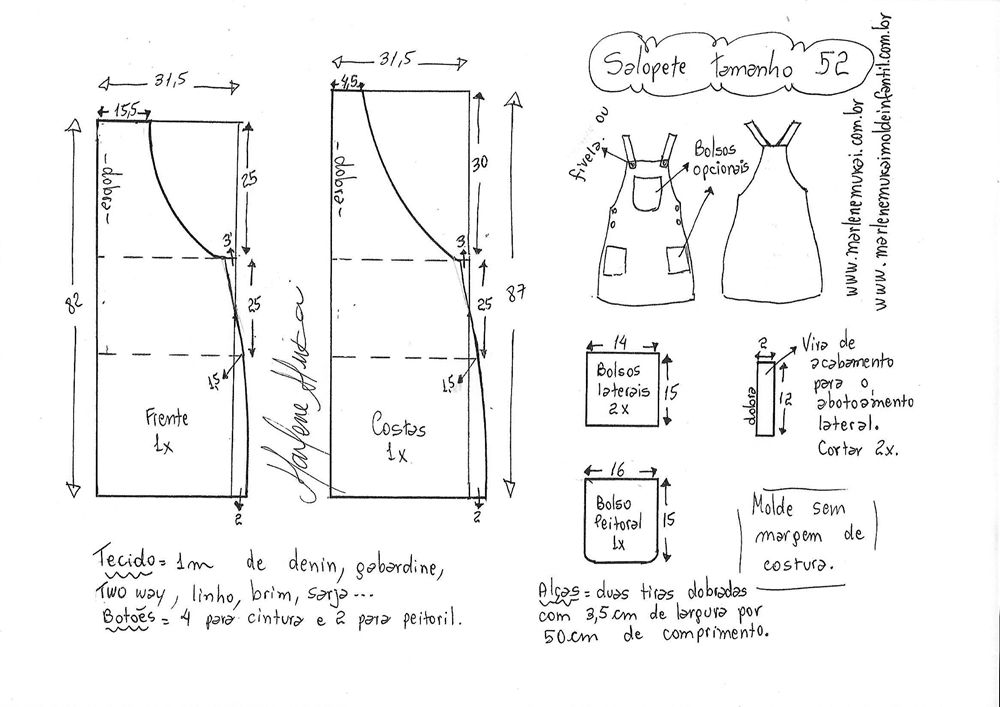 Salopete tamanho 52
www.marlenemukai.com.br
www.marlenemukaimoldeinfantil.com.br
31,5
15,5
-dobra-
25
3
25
82
1,5
Frente
1x
2
31,5
4,5
-dobra-
30
3
25
87
1,5
Costas
1x
2
Marlene Mukai
fivela. ou
Bolsos
opcionais
14
Bolsos
laterais
2x
15
2
dobra
12
Vira de
acabamento
para o
abotoamento
lateral.
Cortar 2x.
16
Bolso
Peitoral
1x
15
Molde sem
margem de
costura.
Tecido = 1m de denin, gabardine,
Two way, linho, brim, sarja...
Botões = 4 para cintura e 2 para peitoril.
Alças = duas tiras dobradas
com 3,5 cm de largura por
50 cm de comprimento.